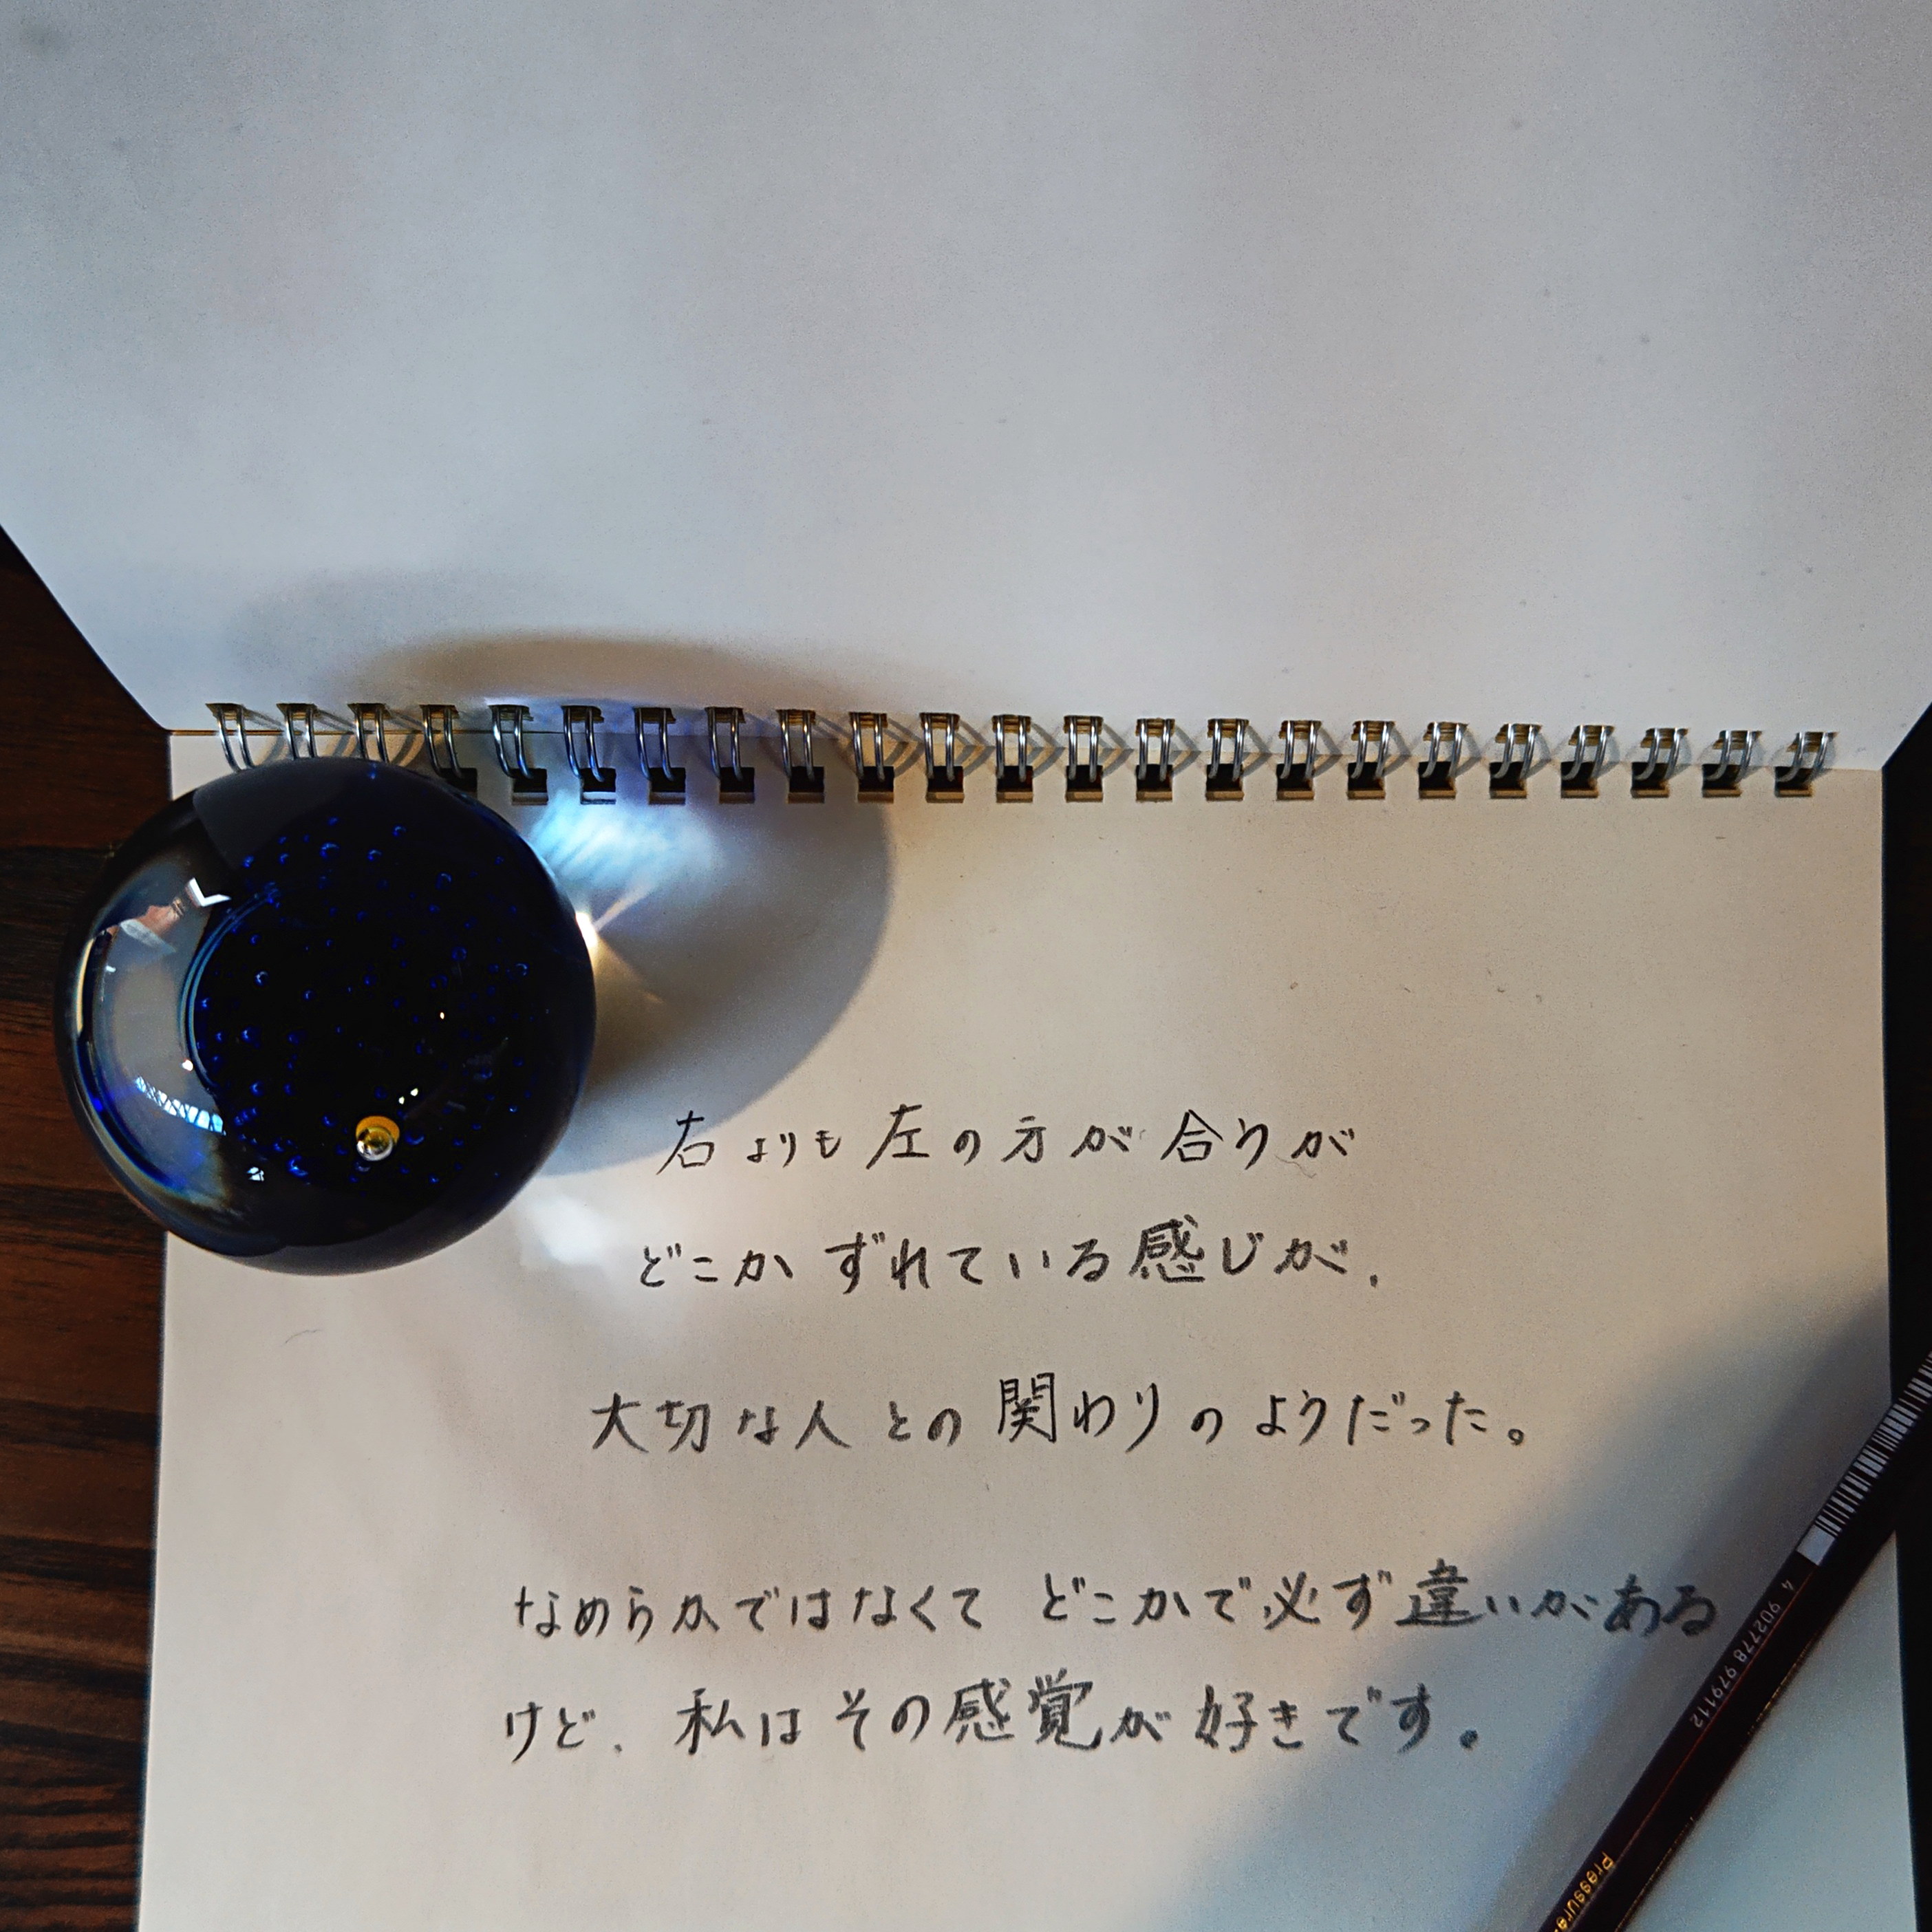 右よりも左の方が合うが
どこかずれている感じが、
大切な人との関わりのようだった。
なめらかではなくて どこかで必ず違いがある
けど、私はその感覚が好きです。
4 902778 979112
Pressure